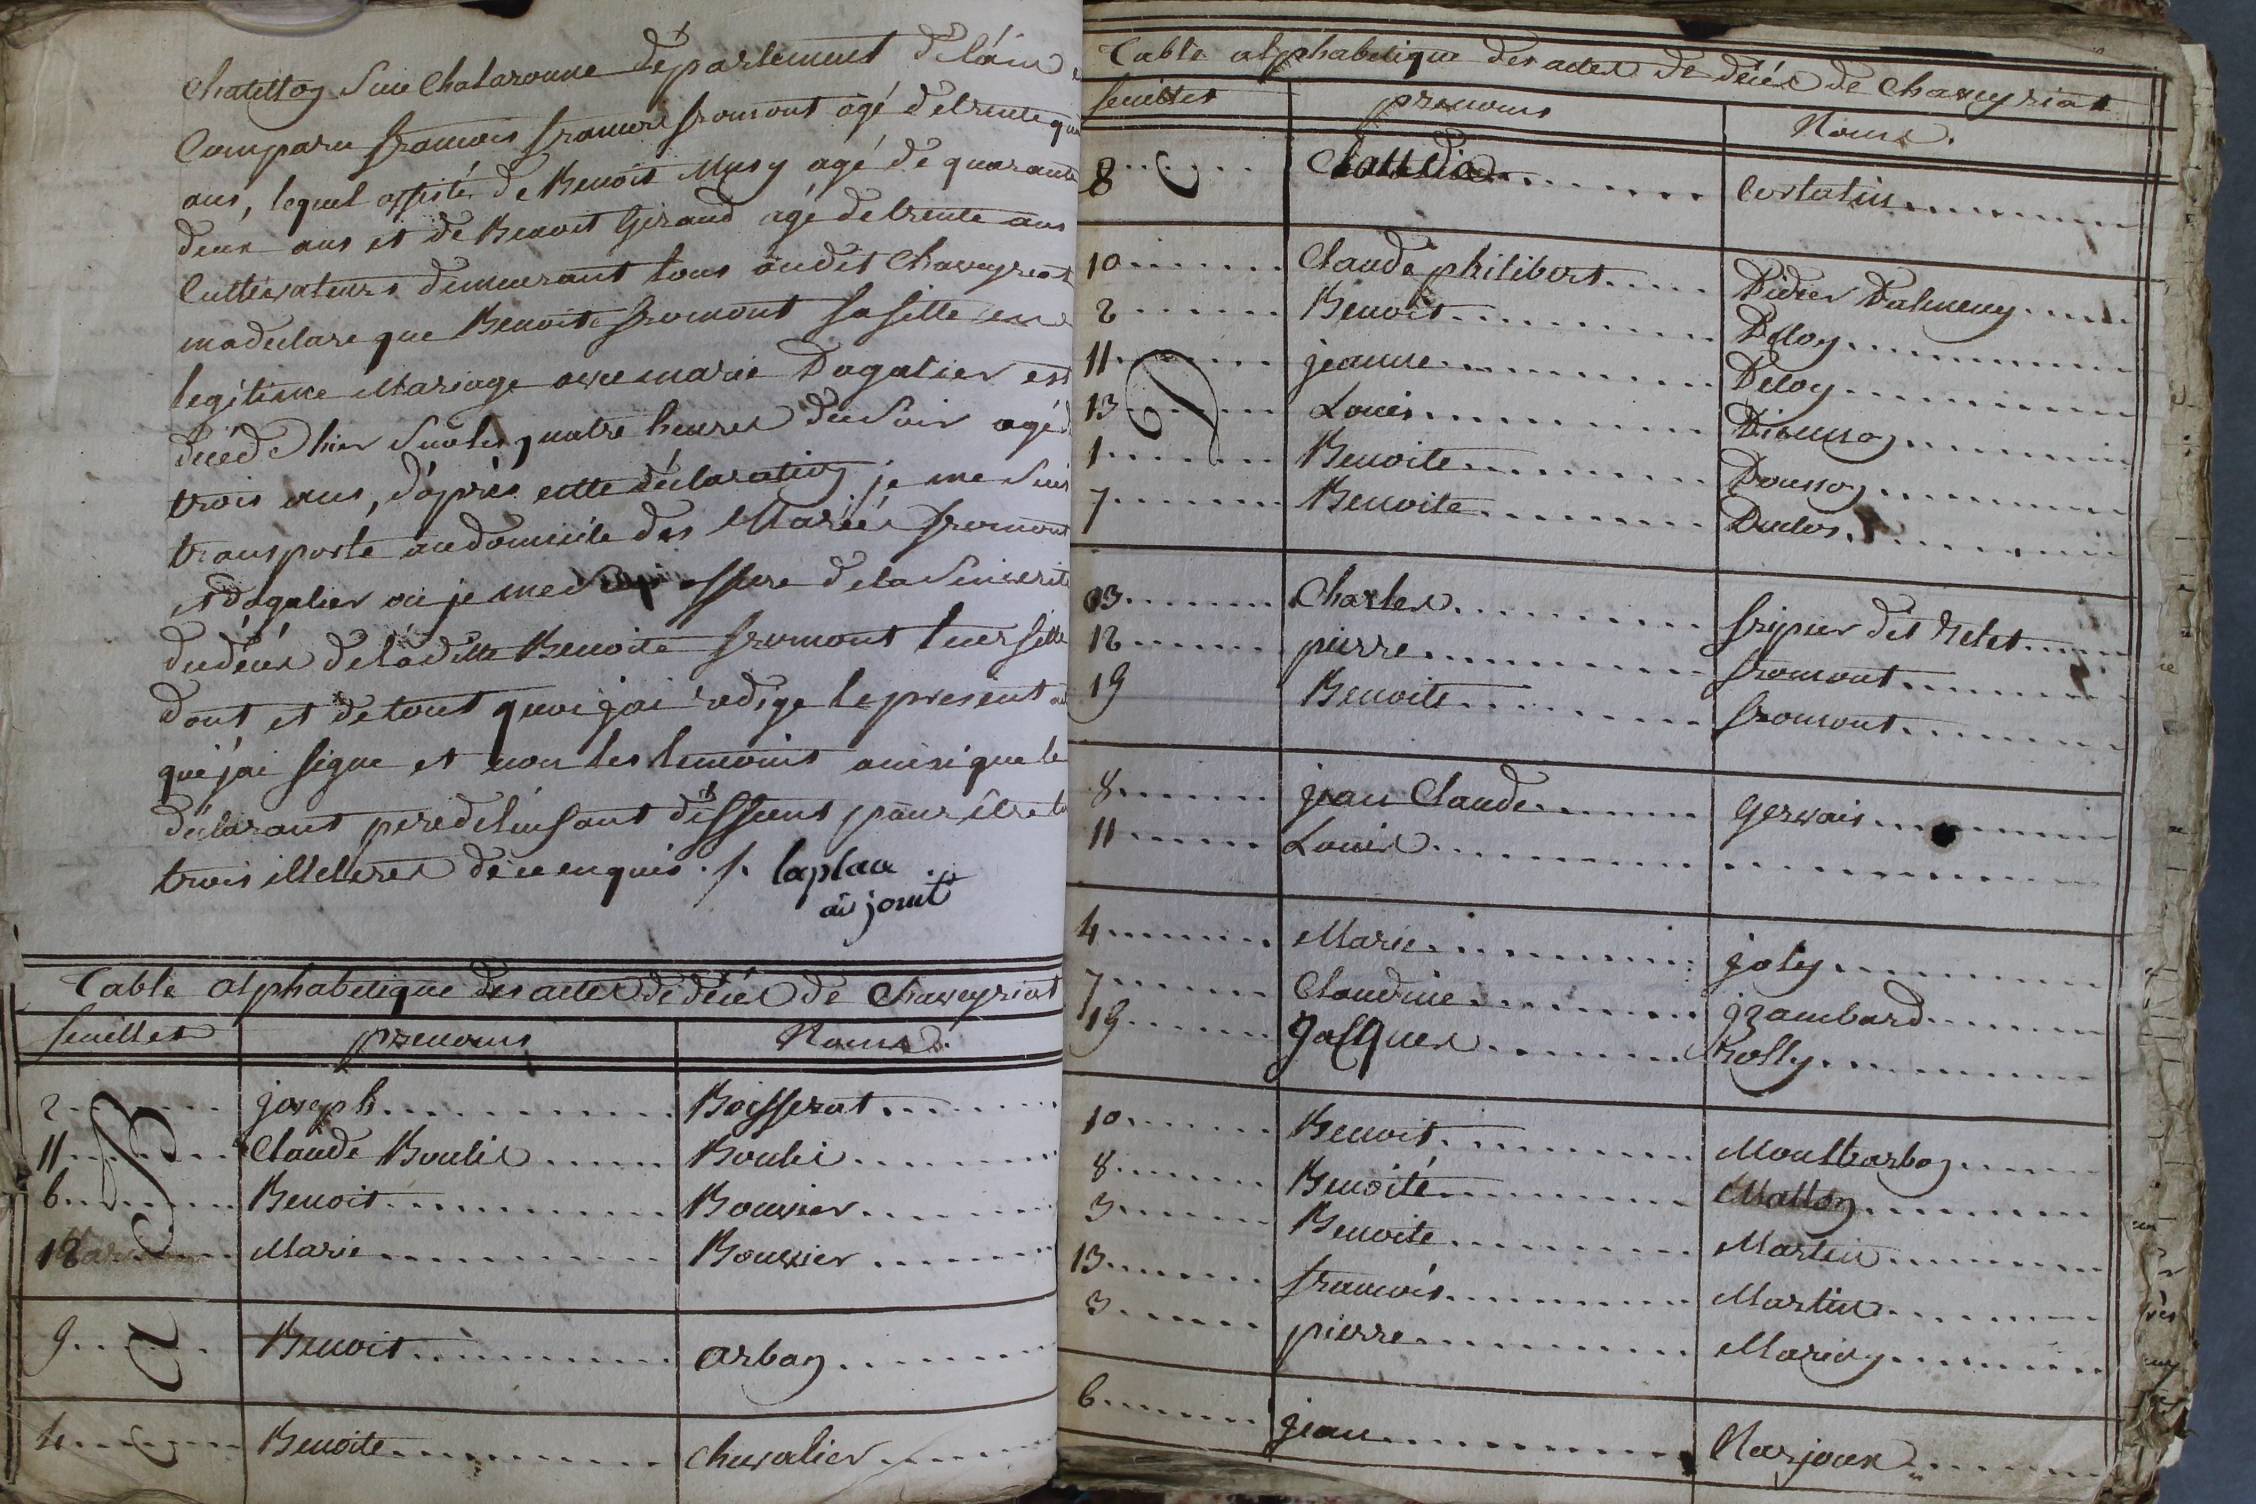 Chatillon sur Chalaronne département de lain
Comparu francois fromont agé de trente
ans, lequel assisté de Benoit Musy agé de quarante
deux ans et de Benoit Giraud agé de trente ans
Cultivateurs demeurant tous audit Chaveyriat
ma declare que Benoite fromont sa fille en
legitime Mariage avec marie Dagalier est
décédé hier sur les quatre heures du soir agé
trois ans, d'après cette déclaration je me suis
transporte au domicile des Mariés fromont
et dagalier où je me suis assure de la sincerite
du décés de la ditte Benoite fromont leur fille
dont et de tout quoi jai redige le present
que j'ai signe et non les temoins ainsi que le
déclarant pere de l'enfant
trois illetteres de ce enquis ./. laplace
adjoint
Table alphabetique des actes de décés de Chaveyriat
feuillets prenoms Noms
B
2 joseph Boisserat
11 Claude Boulis Boulis
6 Benoit Bouvier
12 Marie Bouvier
a
9 Benoit arban
C
4 Benoite Chevalier
Table alphabetique des actes de décés de Chaveyriat
feuillets prenoms Noms
8 C Claudia Cortatin
D
10 Claude philibert Didier Dalmeny
2 Benoit Deloy
11 jeanne Deloy
13 Louis
1 Benoite
7 Benoite Duclos
13 Charles fripier dit
12 pierre fromont
19 Benoite fromont
8 jean Claude gervais
11 Louis
4 Marie joly
7 Claudine jzambard
19 Jacques
10 Benoit Montbarbon
8 Benoite Matton
3 Benoite Martin
13 francois Martin
3 pierre
6 jean Narjoux